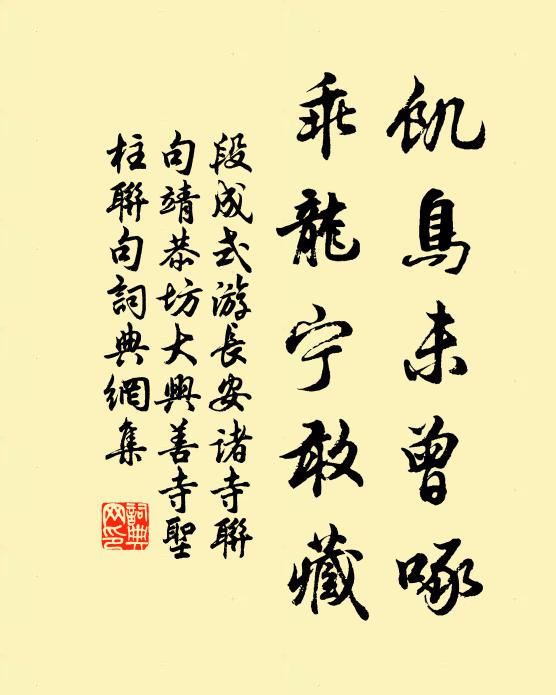 飢鳥未曾啄
乖龍宁敢藏
段成式游長安诸寺聯
句靖恭坊大興善寺聖
柱聯句詞典網集
詞典
网印